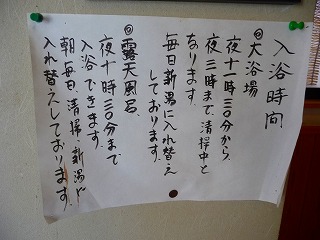 入浴時間
◎大浴場
夜十一時三〇分から
夜三時まで清掃中と
なります。
毎日新湯に入れ替え
しております。
◎露天風呂
夜十時三〇分まで
入浴できます。
朝毎日、清掃、新湯に
入れ替えしております。